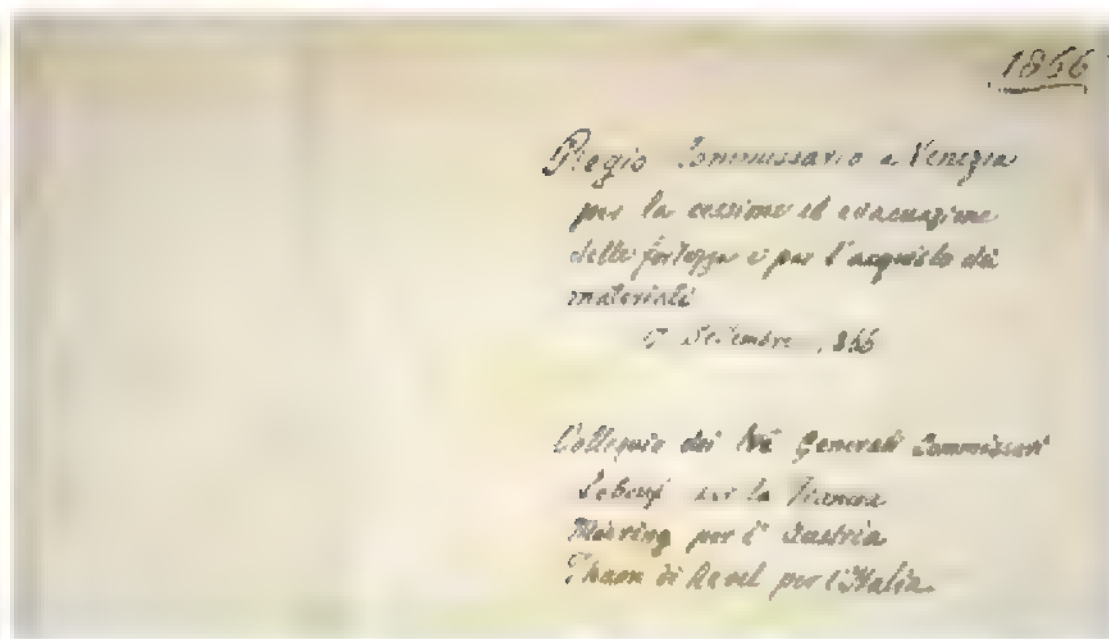 1866
Regio Commissario a Venezia
per la cessione ed evacuazione
delle fortezze e per l'acquisto dei
materiali
Settembre 1866
Colloquio dei tre Generali Commissari
Lebeuf per la Francia
Moering per l'Austria
Thaon di Revel per l'Italia